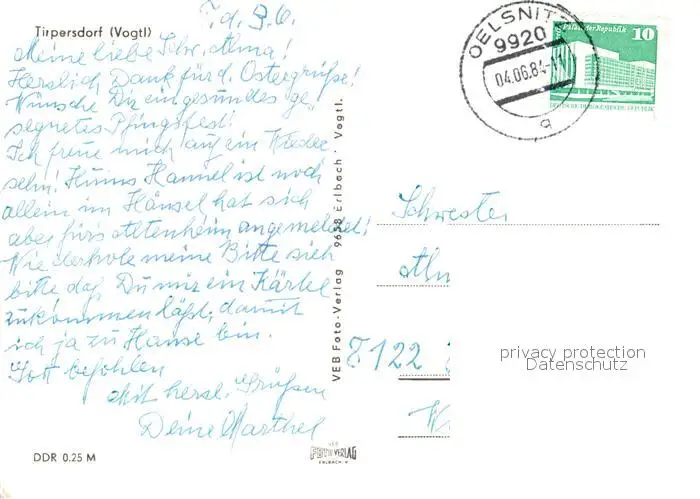 Tirpersdorf (Vogtl)
T. d. 3. 6.
Meine liebe Schw. Alma!
Herzlich Dank für d. Ostergrüße!
Wünsche Dir ein gesundes ge-
segnetes Pfingsfest!
Ich freue mich auf ein Wieder-
sehn! Hannel ist noch
allein im Häusel hat sich
aber fürs Altenheim angemeldet!
Wiederhole meine Bitte sieh
bitte daß Du mir ein Kärtel
zukommen läßt, damit
ich ja zu Hause bin.
Gott befohlen
Mit herzl. Grüßen
Deine Marthel
DDR 0.25 M
VEB Foto-Verlag 9658 Erlbach · Vogtl.
VEB
FOTO VERLAG
ERLBACH V.
OELSNITZ
9920
04.06.84-11
a
Palast der Republik
10
DEUTSCHE DEMOKRATISCHE REPUBLIK
Schwester
Alm
8122
privacy protection
Datenschutz